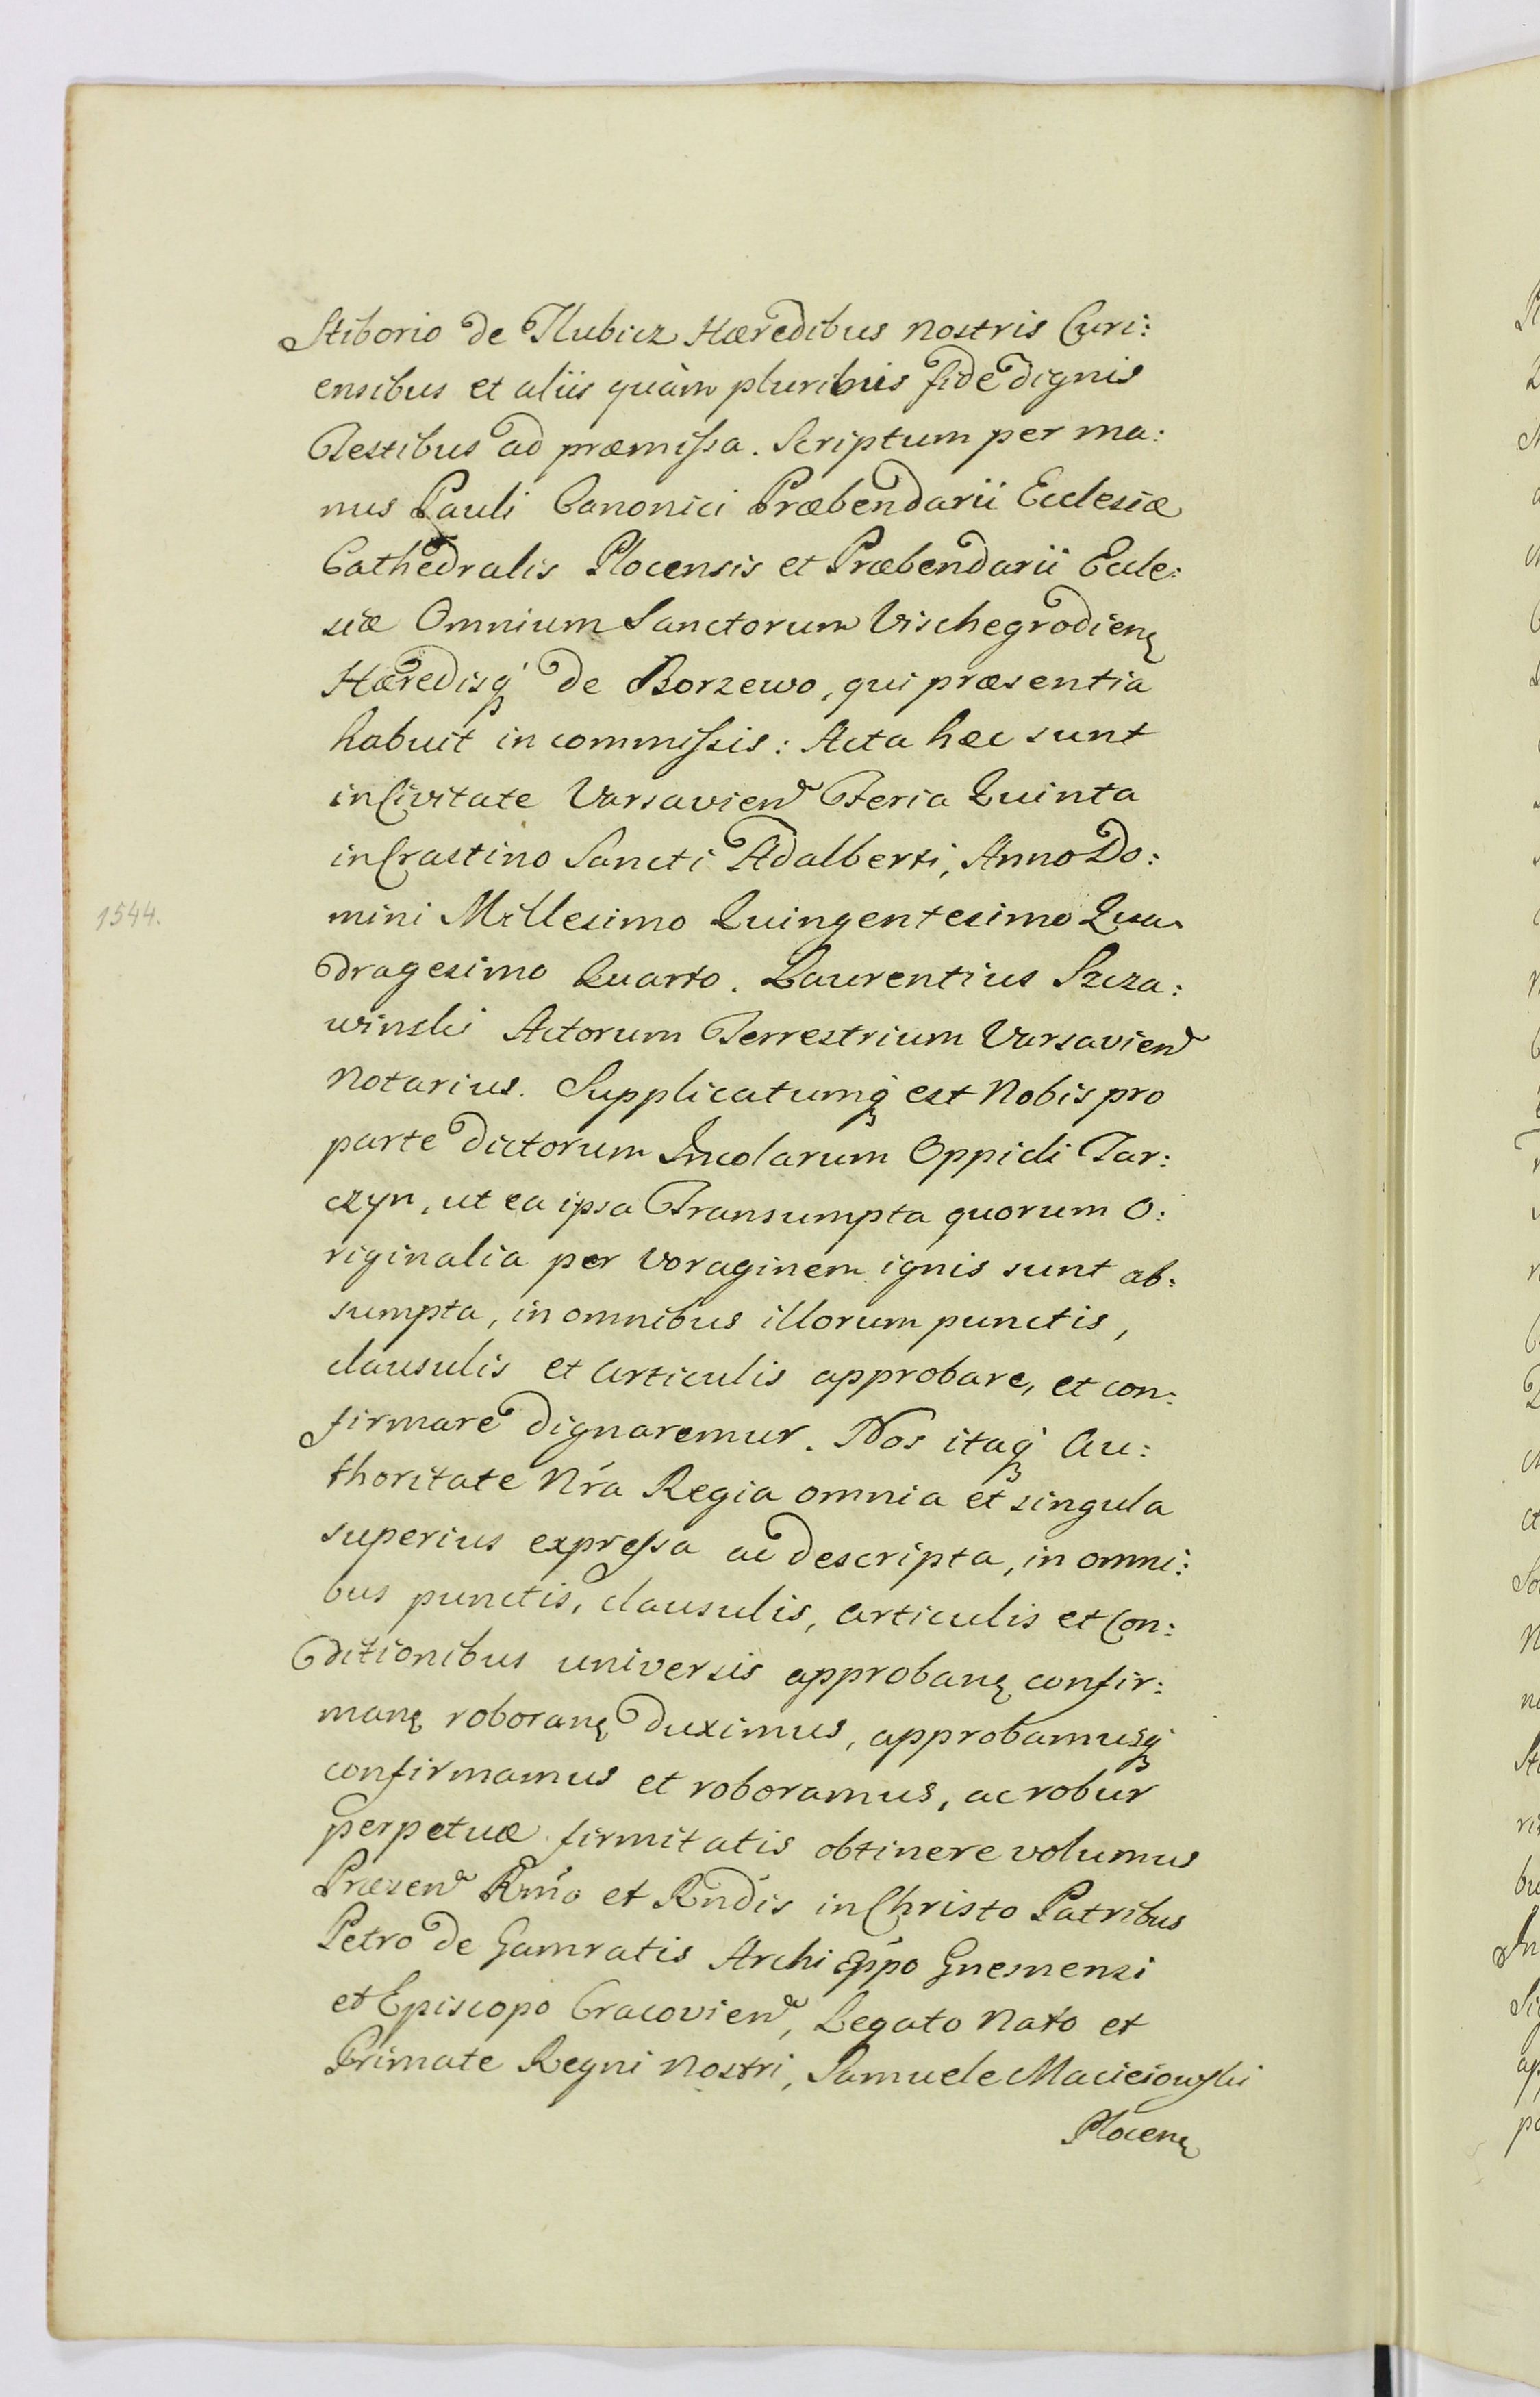 Stiborio de Tlubicz Hæredibus nostris Curi:
ensibus et aliis quàm pluribus fide dignis
Testibus ad præmissa. Scriptum per ma:
nus Pauli Canonici Præbendarii Ecclesiæ
Cathedralis Plocensis et Præbendarii Eccle:
siæ Omnium Sanctorum Vischegrodien̨
Hæredisq́ de Borzewo, qui præsentia
habuit in commissis: Acta hæc sunt
in Civitate Varsavien̄ Feria Quinta
in Crastino Sancti Adalberti, Anno Do:
1544.
mini Millesimo Quingentesimo Qua
dragesimo Quarto. Laurentius Szcza:
winski Actorum Terrestrium Varsavien̄
Notarius. Supplicatumq́ est Nobis pro
parte dictorum Incolarum Oppidi Tar:
czyn, ut ea ipsa Transumpta quorum O:
riginalia per voraginem ignis sunt ab:
sumpta, in omnibus illorum punctis,
clausulis et articulis approbare, et con:
firmare dignaremur. Nos itaq́ Au:
thoritate Nŕa Regia omnia et singula
superius expressa ac descripta, in omni:
bus punctis, clausulis, articulis et Con:
ditionibus universis approban̨ confir:
man̨ roboran̨ duximus, approbamusq́
confirmamus et roboramus, ac robur
perpetuæ firmitatis obtinere volumus
Præsen̄ Rḿo et Rńdis in Christo Patribus
Petro de Gamratis Archi Eṕpo Gnesnensi
et Episcopo Cracovien̄, Legato Nato et
Primate Regni Nostri, Samuele Macieiowski
Plocen̨